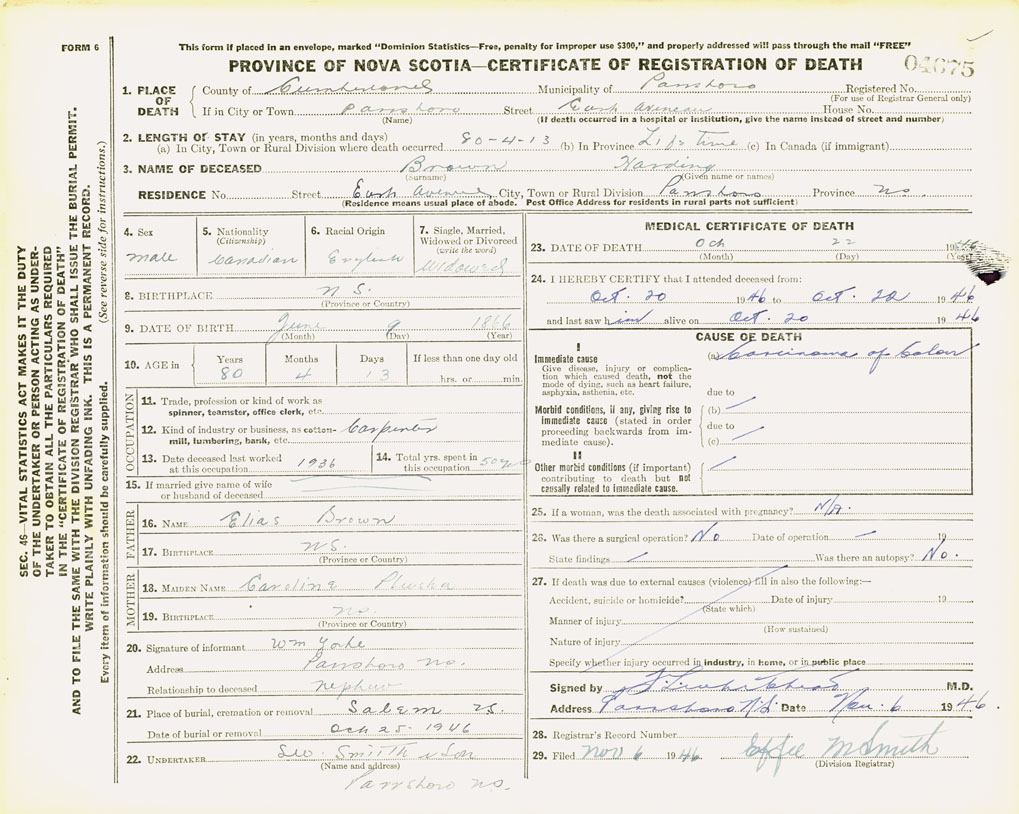 FORM 6
This form if placed in an envelope, marked "Dominion Statistics—Free, penalty for improper use $300," and properly addressed will pass through the mail "FREE"
PROVINCE OF NOVA SCOTIA—CERTIFICATE OF REGISTRATION OF DEATH
04675
SEC. 46—VITAL STATISTICS ACT MAKES IT THE DUTY
OF THE UNDERTAKER OR PERSON ACTING AS UNDER-
TAKER TO OBTAIN ALL THE PARTICULARS REQUIRED
IN THE "CERTIFICATE OF REGISTRATION OF DEATH"
AND TO FILE THE SAME WITH THE DIVISION REGISTRAR WHO SHALL ISSUE THE BURIAL PERMIT.
WRITE PLAINLY WITH UNFADING INK. THIS IS A PERMANENT RECORD.
Every item of information should be carefully supplied. (See reverse side for instructions.)
1. PLACE OF DEATH
County of Cumberland Municipality of Parrsboro Registered No.
(For use of Registrar General only)
If in City or Town Parrsboro Street East Avenue House No.
(Name) (If death occurred in a hospital or institution, give the name instead of street and number)
2. LENGTH OF STAY (in years, months and days)
(a) In City, Town or Rural Division where death occurred 80-4-13 (b) In Province Life time (c) In Canada (if immigrant)
3. NAME OF DECEASED Brown Harding
(Surname) (Given name or names)
RESIDENCE No. Street East Avenue City, Town or Rural Division Parrsboro Province NS
(Residence means usual place of abode. Post Office Address for residents in rural parts not sufficient)
4. Sex
male
5. Nationality
(Citizenship)
Canadian
6. Racial Origin
English
7. Single, Married,
Widowed or Divorced
(write the word)
Widowed
8. BIRTHPLACE N S.
(Province or Country)
9. DATE OF BIRTH June 9 1866
(Month) (Day) (Year)
10. AGE in
Years Months Days If less than one day old
80 4 13 hrs. or min.
OCCUPATION
11. Trade, profession or kind of work as
spinner, teamster, office clerk, etc.
12. Kind of industry or business, as cotton-
mill, lumbering, bank, etc. Carpenter
13. Date deceased last worked
at this occupation 1936
14. Total yrs. spent in
this occupation 50 yrs
15. If married give name of wife
or husband of deceased
FATHER
16. NAME Elias Brown
17. BIRTHPLACE NS.
(Province or Country)
MOTHER
18. MAIDEN NAME Caroline
19. BIRTHPLACE NS.
(Province or Country)
20. Signature of informant Wm Yorke
Address Parrsboro NS.
Relationship to deceased nephew
21. Place of burial, cremation or removal Salem NS.
Date of burial or removal Oct 25 - 1946
22. UNDERTAKER Geo. Smith & Son
(Name and address)
Parrsboro NS.
MEDICAL CERTIFICATE OF DEATH
23. DATE OF DEATH Oct 22 1946
(Month) (Day) (Year)
24. I HEREBY CERTIFY that I attended deceased from:
Oct. 20 1946 to Oct. 22 1946
and last saw him alive on Oct. 20 1946
CAUSE OF DEATH
I
Immediate cause
Give disease, injury or complica-
tion which caused death, not the
mode of dying, such as heart failure,
asphyxia, asthenia, etc.
(a) Carcinoma of Colon
due to
Morbid conditions, if any, giving rise to
immediate cause (stated in order
proceeding backwards from im-
mediate cause).
(b)
due to
(c)
II
Other morbid conditions (if important)
contributing to death but not
causally related to immediate cause.
25. If a woman, was the death associated with pregnancy? N/A.
26. Was there a surgical operation? No Date of operation 19
State findings Was there an autopsy? No.
27. If death was due to external causes (violence) fill in also the following:—
Accident, suicide or homicide? Date of injury 19
(State which)
Manner of injury
(How sustained)
Nature of injury
Specify whether injury occurred in industry, in home, or in public place
Signed by M.D.
Address Parrsboro N.S. Date Nov. 6 1946.
28. Registrar's Record Number
29. Filed Nov 6 1946. Effie M Smith
(Division Registrar)